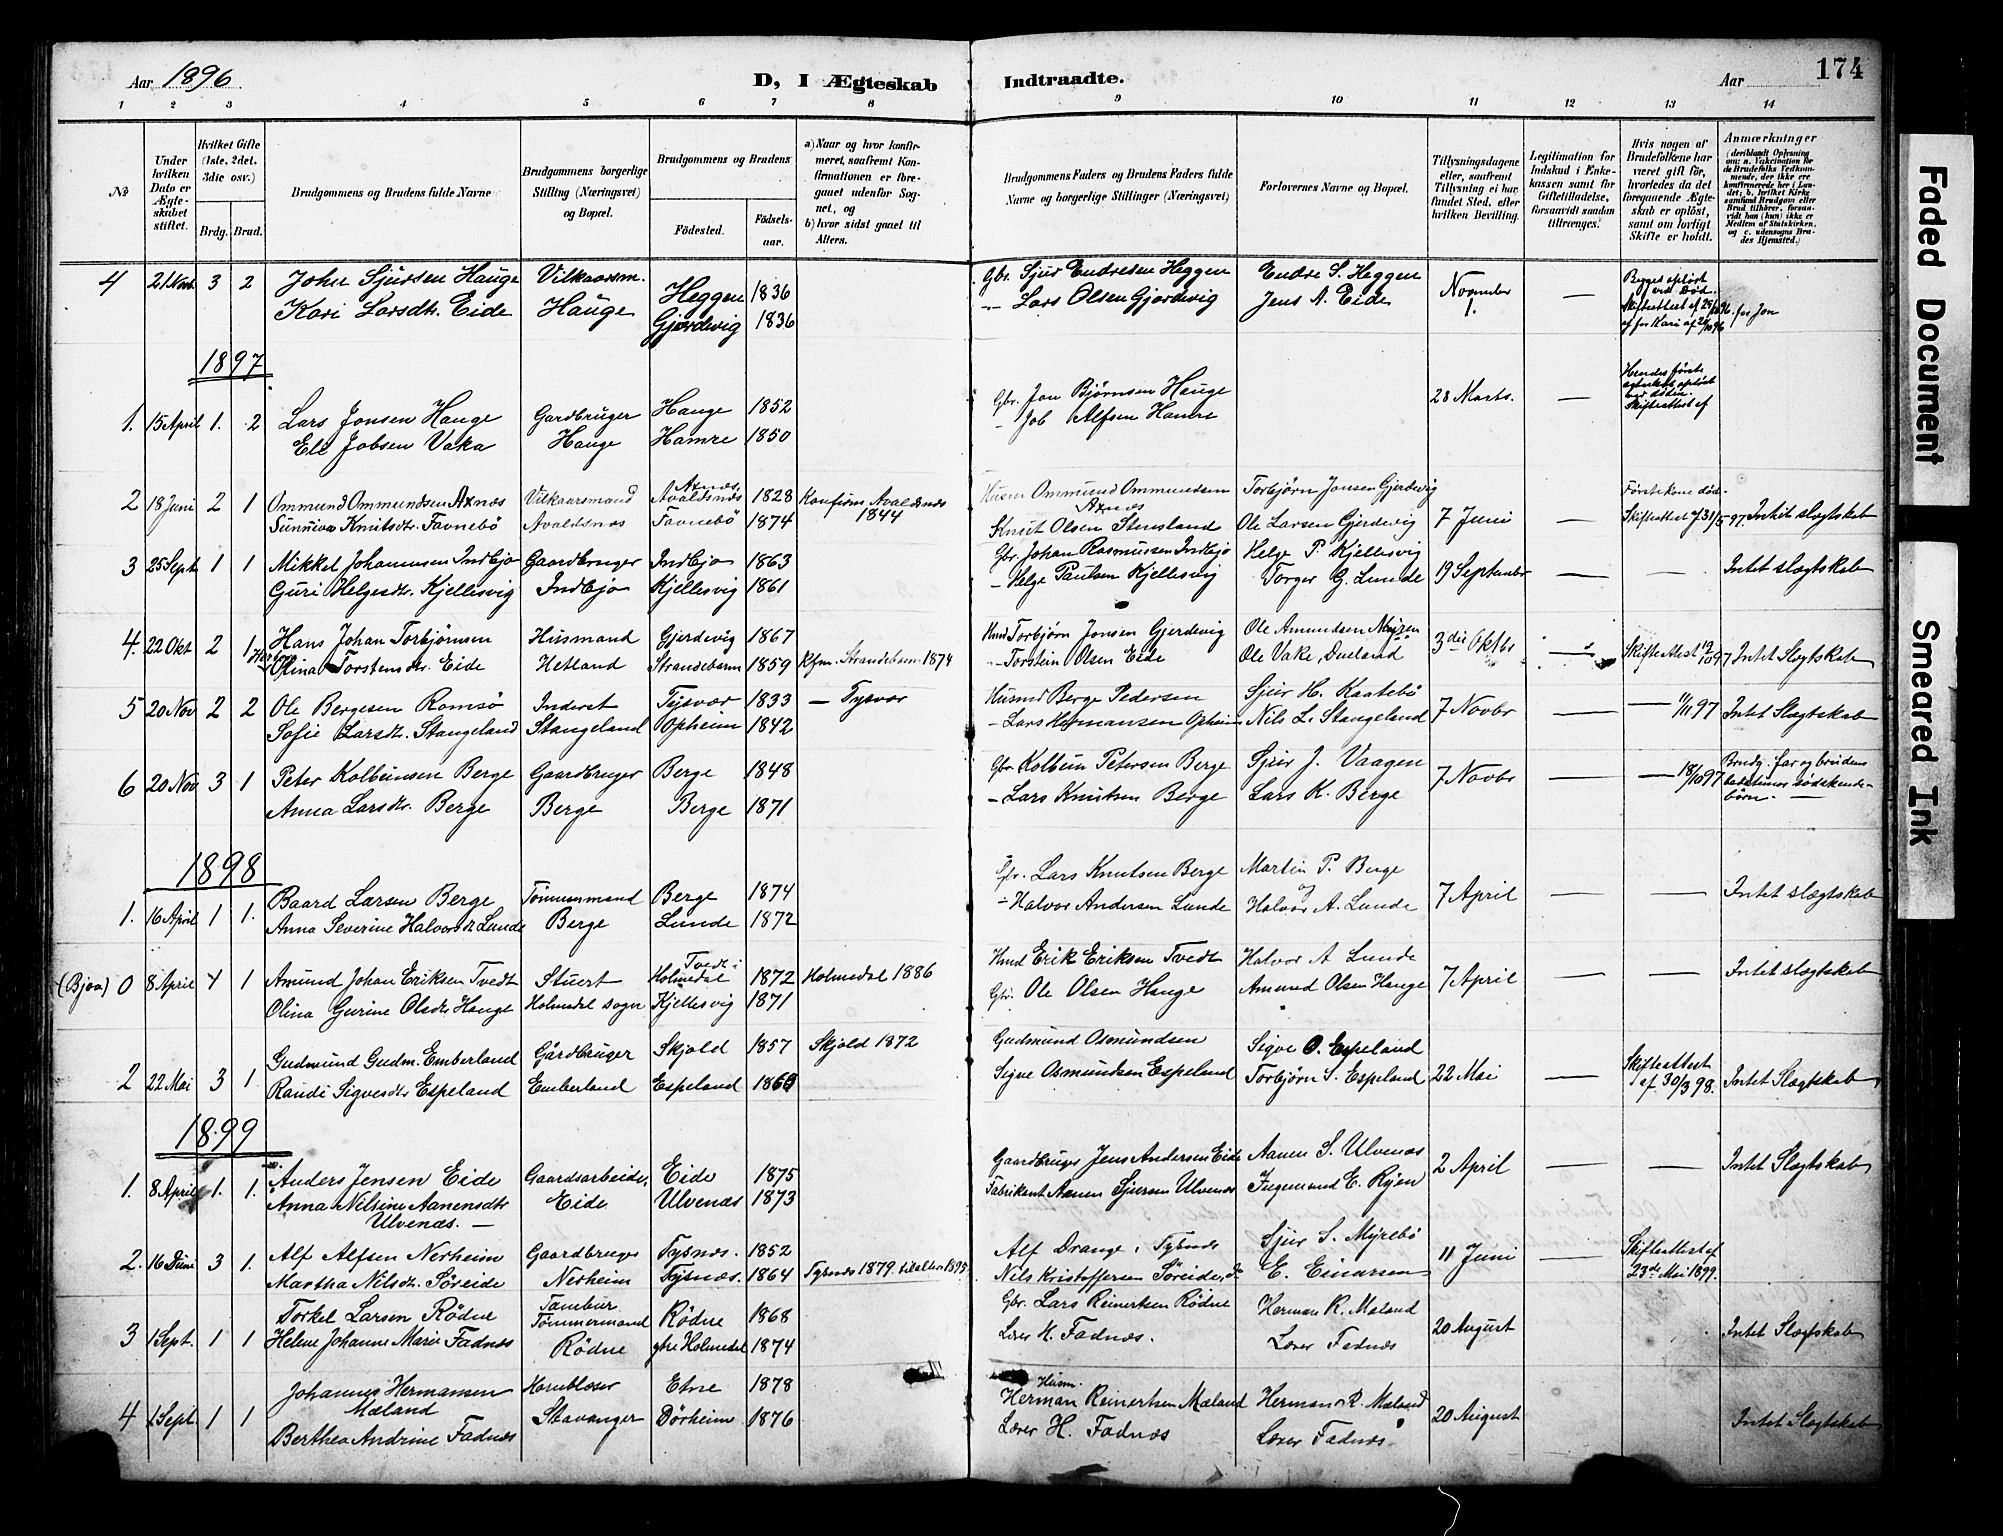 Aar 1896
D, I Ægteskab
Indtraadte.
Aar
174
1 2 3 4 5 6 7 8 9 10 11 12 13 14
No
Under hvilken Dato er Ægteskabet stiftet.
Hvilket Gifte (1ste, 2det, 3die osv.)
Brdg. Brud.
Brudgommens og Brudens fulde Navne
Brudgommens borgerlige Stilling (Næringsvei) og Bopæl.
Brudgommens og Brudens
Fødested.
Fødselsaar.
a) Naar og hvor konfirmeret, saafremt Konfirmationen er foregaaet udenfor Sognet, og
b) hvor sidst gaaet til Alters.
Brudgommens Faders og Brudens Faders fulde Navne og borgerlige Stillinger (Næringsvei)
Forlovernes Navne og Bopæl.
Tillysningsdagene eller, saafremt Tillysning ei har fundet Sted, efter hvilken Bevilling.
Legitimation for Indskud i Enkekassen samt for Giftetilladelse, forsaavidt saadan tiltrænges.
Hvis nogen af Brudefolkene har været gift før, hvorledes da det foregaaende Ægteskab er opløst, samt om lovligt Skifte er holdt.
Anmærkninger
4 21 Novb. 3 2 John Sjursen Hauge Vilkaarsm. Heggen 1836 Gbr. Sjur Endresen Heggen Endre S. Heggen November 1. — Begges opløst ved Død.
Kari Larsdtr. Eide Hauge Gjerdevig 1836 -- Lars Olsen Gjerdevig Jens A. Eide
1897
1. 15 April 1. 2 Lars Jonsen Hauge Gardbruger Hauge 1852 Gbr. Jon Bjørnsen Hauge 28 Marts. —
Eli Jobsen Vaka Hauge Hamre 1850 - Job Alfsen Hamre
2 18 Juni 2 1 Ommund Ommundsen Axnæs Vilkaarsmand Axnæs, Avaldsnæs 1828 Konfirm. Avaldsnæs 1844 Husm Ommund Ommundsen Axnæs Torbjørn Jonsen Gjerdevig
Sunniva Knutsdtr. Favnebö Avaldsnæs Favnebö 1874 Knut Olsen Stensland Ole Larsen Gjerdevig 7 Juni — Skifteattest 31/5 97. Intet slægtskab
3 25 Sept 1 1 Mikkel Johannesen Indbjo Gaardbruger Indbjo 1863 Gbr. Johan Rasmussen Indbjo Helge P. Kjellesvig
Guri Helgesdtr. Kjellesvig Indbjo Kjellesvig 1861 - Helge Paulsen Kjellesvig Torger G. Lunde 19 September — — Intet slægtskab
4. 22 Okt 2 1 Hans Johan Torbjørnsen Husmand Gjerdevig 1867 Torbjørn Jonsen Gjerdevig Ole Amundsen Myren 3die Oktbr
Olina Torstensdtr. Eide Hetland Strandebarm 1859 Kfm. Strandebarm 1874 -- Torstein Olsen Eide Ole Vake, Dueland Skifteattest 12/10 97 Intet Slægtskab
5 20 Nov 2 2 Ole Bergesen Romsö Inderst Tysvær 1833 — Tysvær Husmd Berge Pedersen Sjur H. Kaatebö
Sofie Larsdtr. Stangeland Stangeland Opheim 1842 - Lars Hermansen Opheim Nils L. Stangeland 7 Novbr — — 1/11 97 Intet Slægtskab
6 20 Nov 3 1 Peter Kolbeinsen Berge Gaardbruger Berge 1848 Gbr Kolbein Petersen Berge Sjur J. Vaagen 7 Novbr — — 18/10 97 Brudg. far og brudens
Anna Larsdtr. Berge Berge Berge 1871 - Lars Knutsen Berge Lars K. Berge södskendebörn. —
1898
1. 16 April 1 1. Baard Larsen Berge Tömmermand Berge 1874 Gbr. Lars Knutsen Berge Martin P. Berge og
Anna Severine Halvorsdtr Lunde Berge Lunde 1872 - Halvor Andersen Lunde Halvor A. Lunde 7 April — — Intet slægtskab
(Bjoa) 0 8 April 4 1 Amund Johan Eriksen Tvedt Stuert Tvedt i Holmedal 1872 Holmedal 1886 Hmd Erik Eriksen Tvedt Halvor A Lunde
Olina Gurine Olsdtr Hauge Holmedal sogn Kjellesvig 1871 Gbr. Ole Olsen Hauge Amund Olsen Hauge 7 April — — Intet slægtskab
2 22 Mai 3 1 Gudmund Gudm. Emberland Gårdbruger Skjold 1857 Skjold 1872 Gudmund Osmundsen Sigve O. Espeland
Randi Sigvesdtr Espeland Emberland Espeland 1860 Sigve Osmundsen Espeland Torbjørn S. Espeland 22 Mai — Skifteattest af 30/3 98. Intet Slægtskab
1899
1. 8 April 1. 1. Anders Jensen Eide Gaardsarbeider, Eide 1875 Gaardbruger Jens Andersen Eide Aanen S. Ulvenæs
Anna Nelsine Aanensdtr Ulvenæs. — Eide Ulvenæs 1873 Fabrikant Aanen Sjursen Ulvenæs Ingemund E. Ryen 2 April — — Intet Slægtskab
2. 16 Juni 3 1. Alf Alfsen Nerheim Gaardbruger Tysnæs. 1852 Alf Drange, Tysnæs Sjur S. Myrebö
Martha Nilsdtr. Söreide Nerheim Tysnæs. 1864 Tysnæs 1879. til alters 1895 Nils Kristoffersen Söreide, do E. Einarsen 11 Juni — Skifteattest af 23de Mai 1899.
3 1 Sept. 1 1 Torkel Larsen Rödne Tambur Tömmermand Rödne 1868 Gbr. Lars Reinertsen Rödne Herman R. Mæland
Helene Johanne Marie Fadnæs Rödne ytre Holmedal 1874 Lærer H. Fadnæs. Lærer Fadnæs 20 August Intet Slægtskab
4 1 Sept. 1 1 Johannes Hermansen Mæland Hornblæser Etne 1878 Husm. Herman Reinertsen Mæland Herman R. Mæland
Berthea Andrine Fadnæs Stavanger Dörheim 1876 Lærer H. Fadnæs Lærer Fadnæs 20 August Intet Slægtskab
Faded Document
Smeared Ink